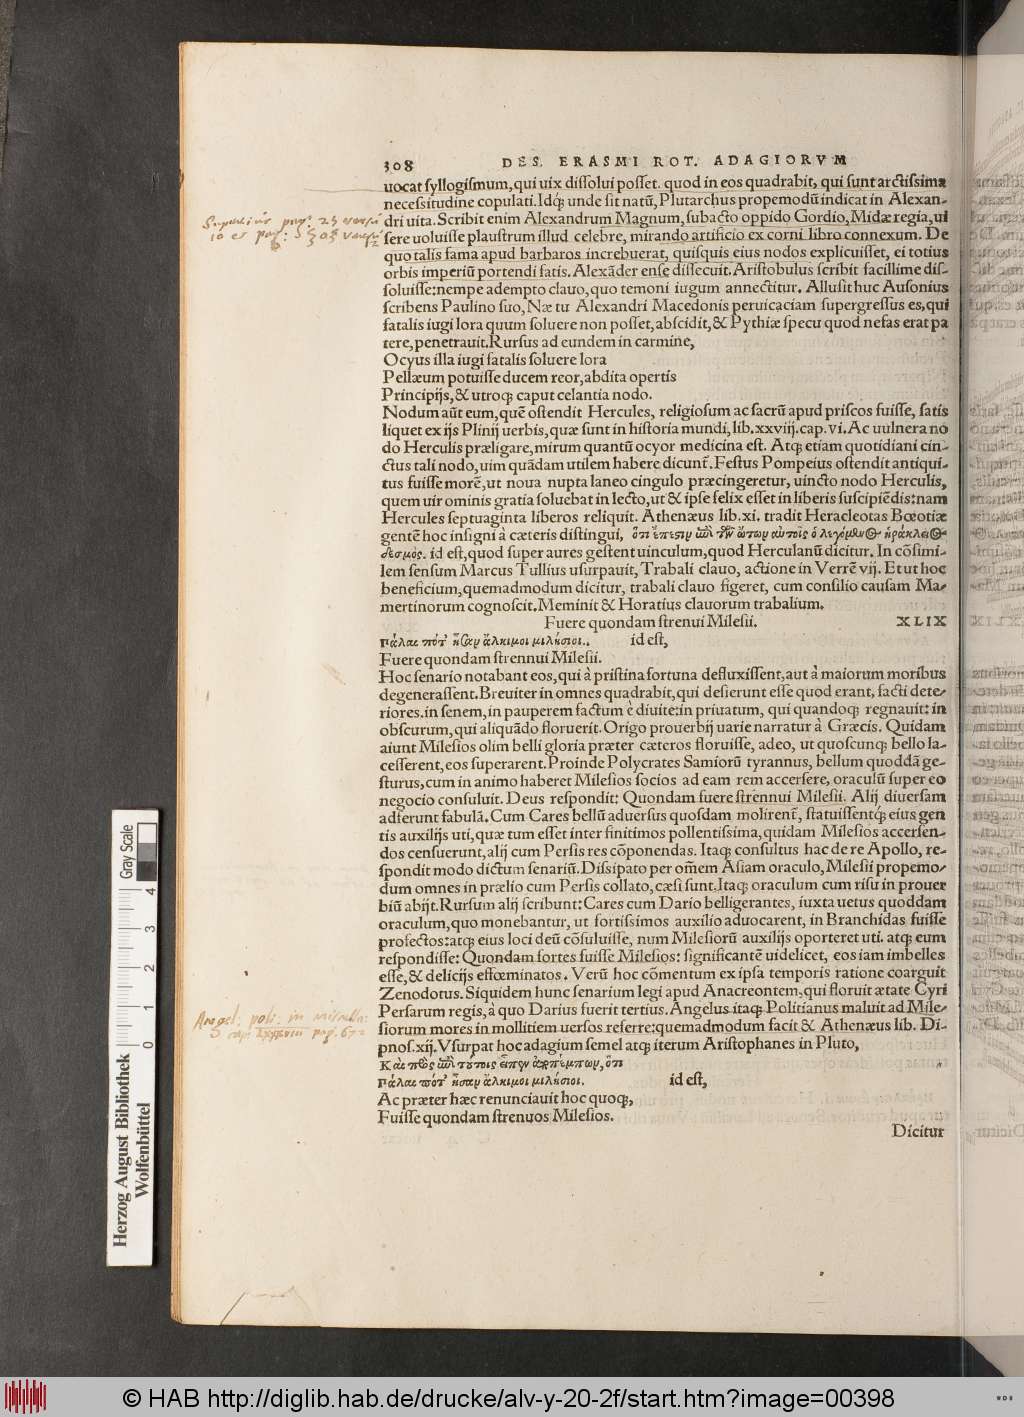 308 DES. ERASMI ROT. ADAGIORVM
uocat syllogismum, qui uix dissolui posset. quod in eos quadrabit, qui sunt arctissima
necessitudine copulati. Idq́; unde sit natũ, Plutarchus propemodũ indicat in Alexan-
dri uita. Scribit enim Alexandrum Magnum, subacto oppido Gordio, Midæ regia, ui
sere uoluisse plaustrum illud celebre, mirando artificio ex corni libro connexum. De
quo talis fama apud barbaros increbuerat, quisquis eius nodos explicuisset, ei totius
orbis imperiũ portendi fatis. Alexãder ense dissecuit. Aristobulus scribit facillime dis-
soluisse: nempe adempto clauo, quo temoni iugum annectitur. Allusit huc Ausonius
scribens Paulino suo, Næ tu Alexandri Macedonis peruicaciam supergressus es, qui
fatalis iugi lora quum soluere non posset, abscidit, & Pythiæ specu quod nefas erat pa
tere, penetrauit. Rursus ad eundem in carmine,
Ocyus illa iugi fatalis soluere lora
Pellæum potuisse ducem reor, abdita opertis
Principijs, & utroq; caput celantia nodo.
Nodum aũt eum, quẽ ostendit Hercules, religiosum ac sacrũ apud priscos fuisse, satis
liquet ex ijs Plinij uerbis, quæ sunt in historia mundi, lib. xxviij. cap. vi. Ac uulnera no
do Herculis præligare, mirum quantũ ocyor medicina est. Atq; etiam quotidiani cin-
ctus tali nodo, uim quãdam utilem habere dicunt̃. Festus Pompeius ostendit antiqui-
tus fuisse morẽ, ut noua nupta laneo cingulo præcingeretur, uincto nodo Herculis,
quem uir ominis gratia soluebat in lecto, ut & ipse felix esset in liberis suscipiẽdis: nam
Hercules septuaginta liberos reliquit. Athenæus lib. xi. tradit Heracleotas Bœotiæ
gentẽ hoc insigni à cæteris distingui, ὅτι ἔπεισιν ἐπὶ τῶν ὤτων αὐτοῖς ὁ λεγόμενος ἡράκλειος
δεσμὸς. id est, quod super aures gestent uinculum, quod Herculanũ dicitur. In cõsimi-
lem sensum Marcus Tullius usurpauit, Trabali clauo, actione in Verrẽ vij. Et ut hoc
beneficium, quemadmodum dicitur, trabali clauo figeret, cum consilio causam Ma-
mertinorum cognoscit. Meminit & Horatius clauorum trabalium.
Fuere quondam strenui Milesii. XLIX
Πάλαι πότ' ἦσαν ἄλκιμοι μιλήσιοι. id est,
Fuere quondam strennui Milesii.
Hoc senario notabant eos, qui à pristina fortuna defluxissent, aut à maiorum moribus
degenerassent. Breuiter in omnes quadrabit, qui desierunt esse quod erant, facti dete-
riores. in senem, in pauperem factum è diuite: in priuatum, qui quandoq; regnauit: in
obscurum, qui aliquãdo floruerit. Origo prouerbij uarie narratur à Græcis. Quidam
aiunt Milesios olim belli gloria præter cæteros floruisse, adeo, ut quoscunq; bello la-
cesserent, eos superarent. Proinde Polycrates Samiorũ tyrannus, bellum quoddã ge-
sturus, cum in animo haberet Milesios socios ad eam rem accersere, oraculũ super eo
negocio consuluit. Deus respondit: Quondam fuere strennui Milesii. Alij diuersam
adferunt fabulã. Cum Cares bellũ aduersus quosdam molirent̃, statuissentq́; eius gen
tis auxilijs uti, quæ tum esset inter finitimos pollentissima, quidam Milesios accersen-
dos censuerunt, alij cum Persis res cõponendas. Itaq; consultus hac de re Apollo, re-
spondit modo dictum senariũ. Dissipato per om̃em Asiam oraculo, Milesii propemo-
dum omnes in prælio cum Persis collato, cæsi sunt. Itaq; oraculum cum risu in prouer
biũ abijt. Rursum alij scribunt: Cares cum Dario belligerantes, iuxta uetus quoddam
oraculum, quo monebantur, ut fortissimos auxilio aduocarent, in Branchidas fuisse
profectos: atq; eius loci deũ cõsuluisse, num Milesiorũ auxilijs oporteret uti. atq; eum
respondisse: Quondam fortes fuisse Milesios: significantẽ uidelicet, eos iam imbelles
esse, & delicijs effœminatos. Verũ hoc cõmentum ex ipsa temporis ratione coarguit
Zenodotus. Siquidem hunc senarium legi apud Anacreontem, qui floruit ætate Cyri
Persarum regis, à quo Darius fuerit tertius. Angelus itaq; Politianus maluit ad Mile-
siorum mores in mollitiem uersos referre: quemadmodum facit & Athenæus lib. Di-
pnos. xij. Vsurpat hoc adagium semel atq; iterum Aristophanes in Pluto,
Καὶ πρὸς ἐπὶ τούτοις εἶπεν ἀποπέμπων, ὅτι
Πάλαι πότ' ἦσαν ἄλκιμοι μιλήσιοι. id est,
Ac præter hæc renunciauit hoc quoq;,
Fuisse quondam strenuos Milesios.
Dicitur
Superius pag: 25
10 et pag:
Angel: poli: in miscella:
pag. 672
Gray Scale
0 1 2 3 4
Herzog August Bibliothek
Wolfenbüttel
© HAB http://diglib.hab.de/drucke/alv-y-20-2f/start.htm?image=00398